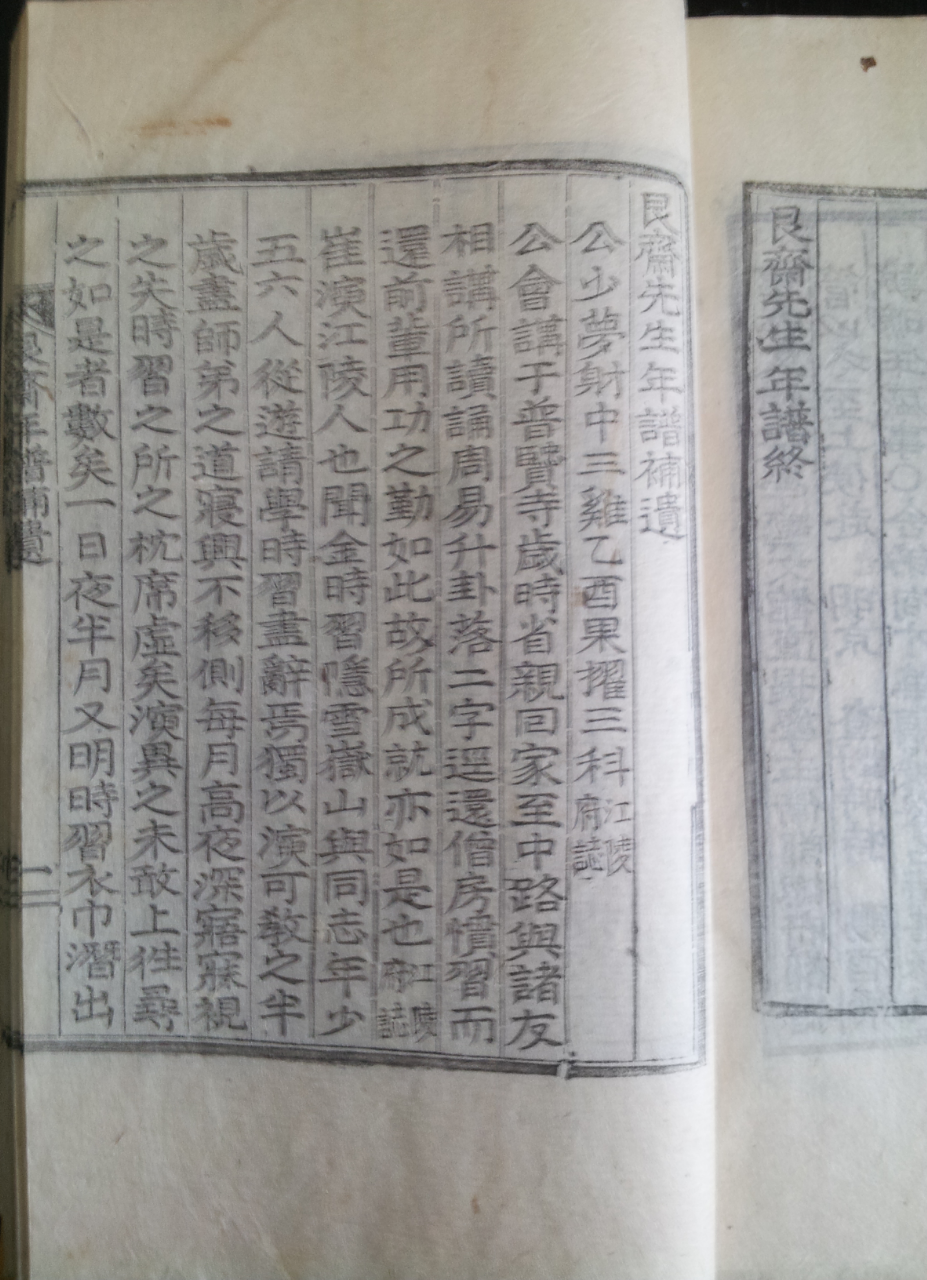 艮齋先生年譜終
艮齋先生年譜補遺
公少夢射中三雞乙酉果擢三科江陵府誌
公會講于普賢寺歲時省親回家至中路與諸友
相講所讀誦周易升卦落二字逕還僧房憤習而
還前輩用功之勤如此故所成就亦如是也江陵府誌
崔演江陵人也聞金時習隱雪嶽山與同志年少
五六人從遊請學時習盡辭焉獨以演可教之半
歲盡師弟之道寢興不移側每月高夜深寤寐視
之失時習之所之枕席虛矣演異之未敢上徃尋
之如是者數矣一日夜半月又明時習衣巾潛出
艮齋年譜補遺
一